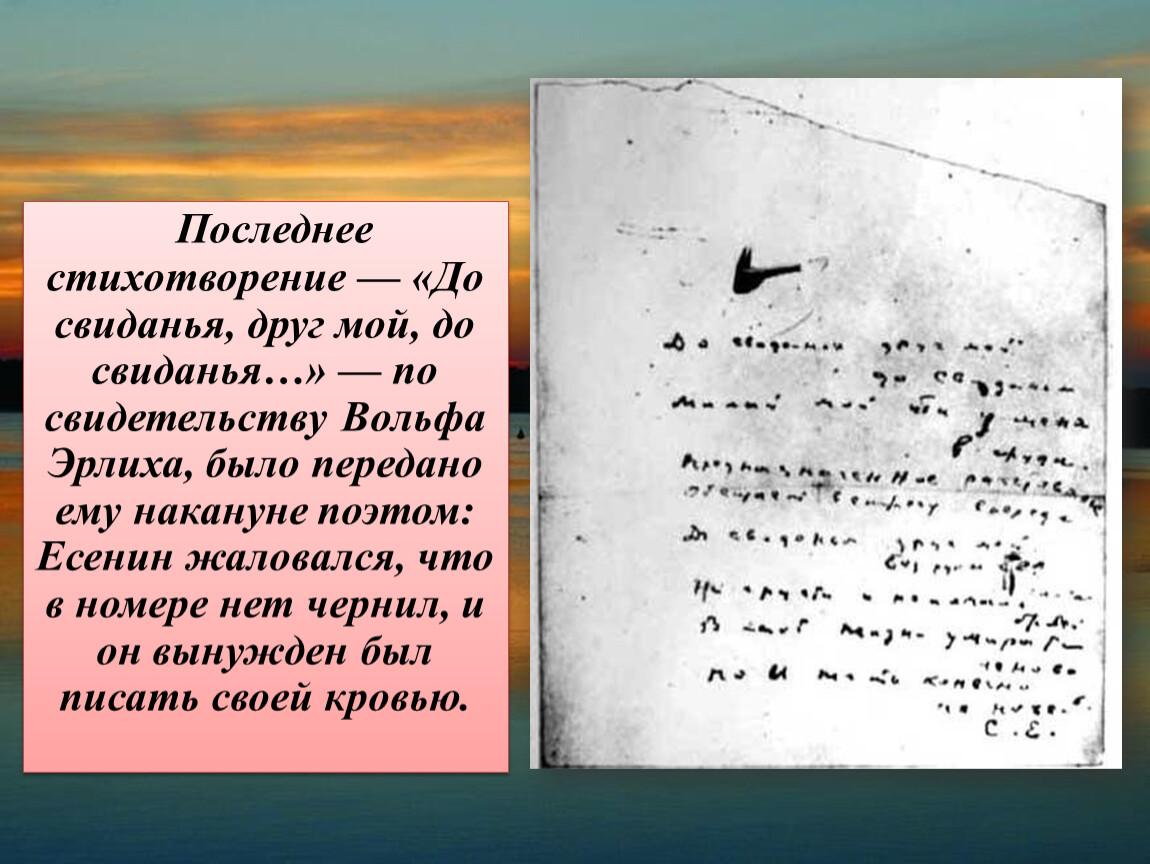 Последнее
стихотворение — «До
свиданья, друг мой, до
свиданья…» — по
свидетельству Вольфа
Эрлиха, было передано
ему накануне поэтом:
Есенин жаловался, что
в номере нет чернил, и
он вынужден был
писать своей кровью.
До свиданья друг мой
до свиданья
Милый мой ты у меня
в груди.
Предназначенное расставанье
обещает встречу впереди
До свиданья друг мой
без руки
грусти и
В этой жизни умирать
не ново
но и жить конечно
не новей.
С.Е.